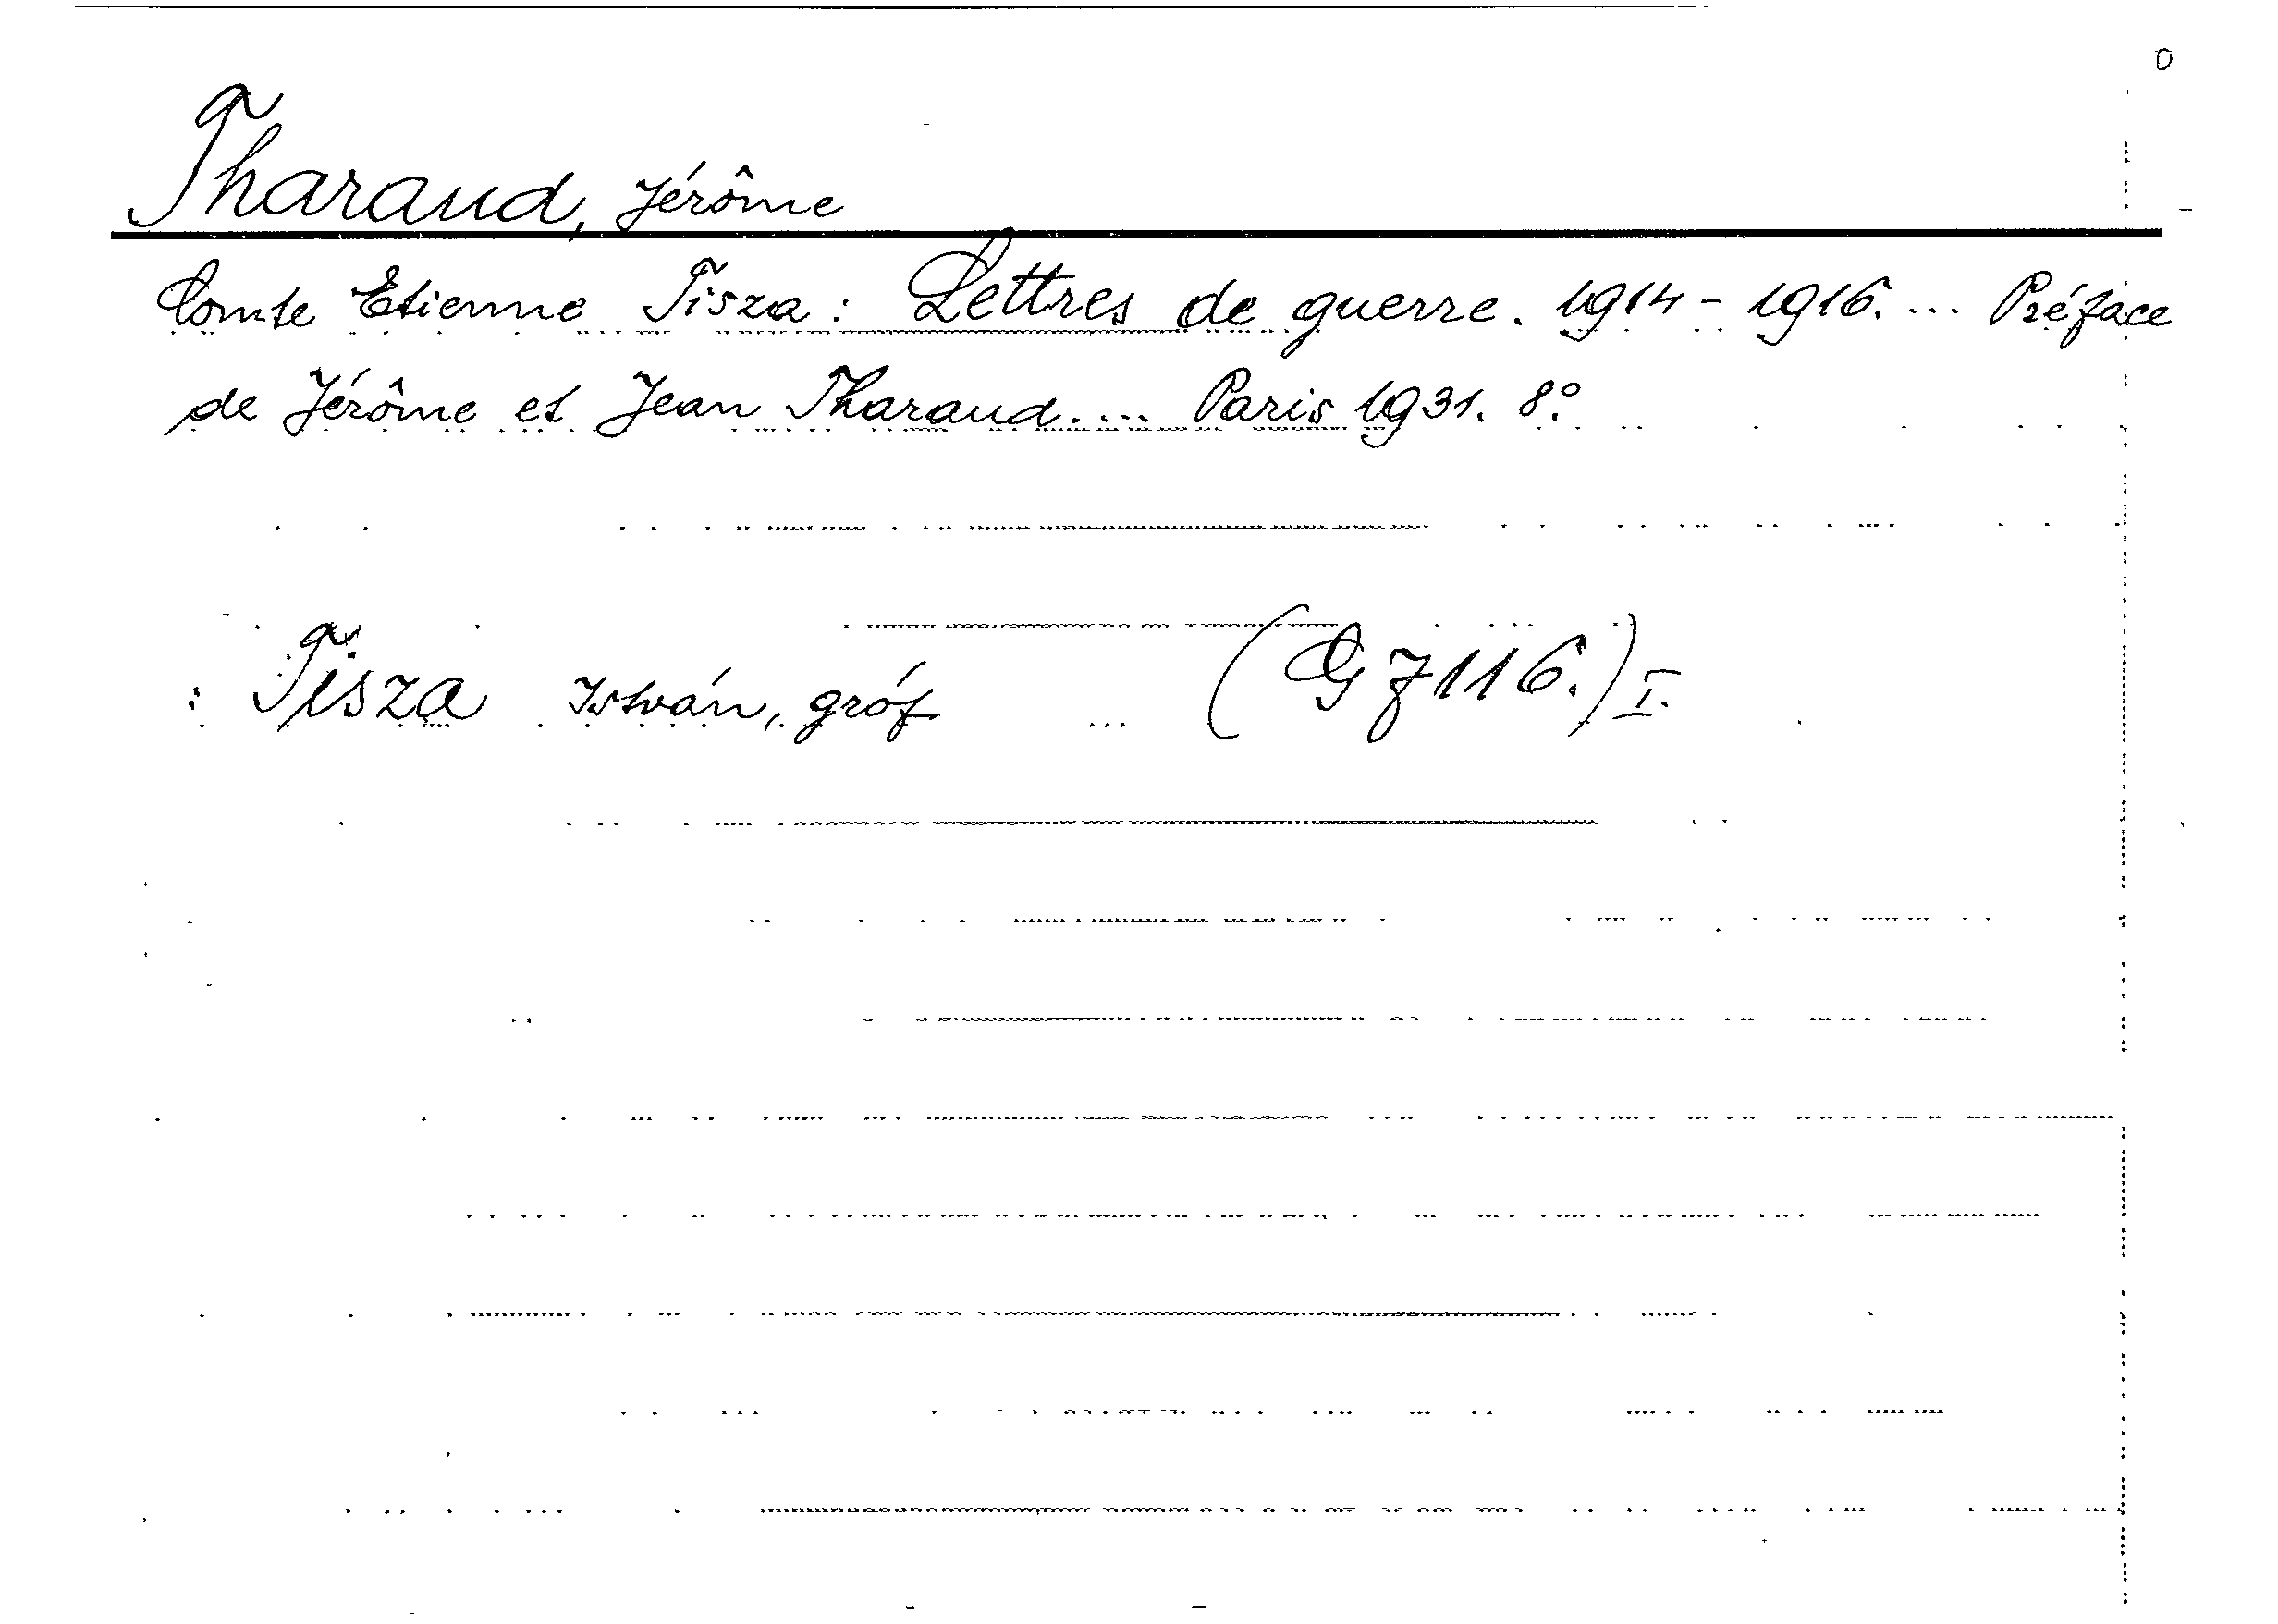 Tharaud, Jérôme
Comte Etienne Tisza: Lettres de guerre. 1914-1916. ... Préface
de Jérôme et Jean Tharaud. ... Paris 1931. 8º
: Tisza István, gróf (Gz 116.) I.